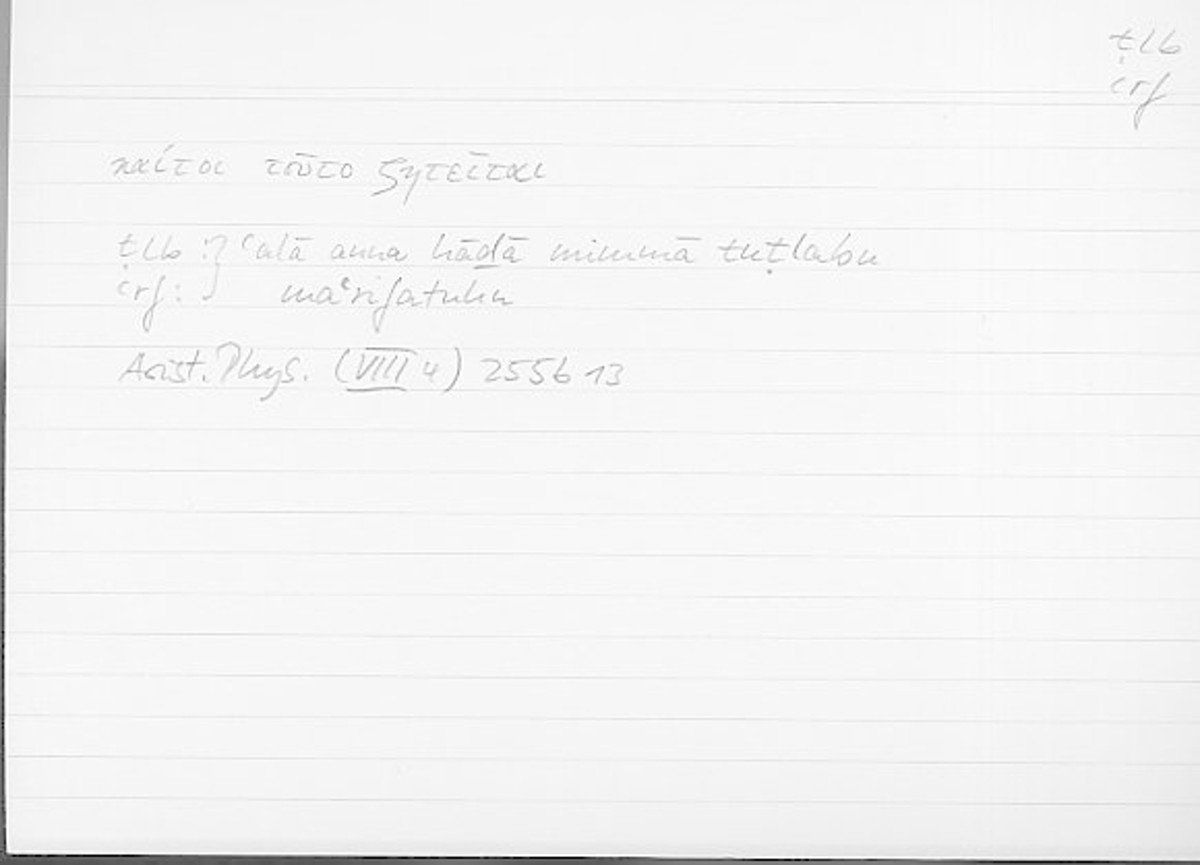 ṭlb
ʿrf
καίτοι τοῦτο ζητεῖται
ṭlb :} ʿalā anna hāḏā mimmā tuṭlabu
ʿrf : maʿrifatuhu
Arist. Phys. (VIII 4) 255b13